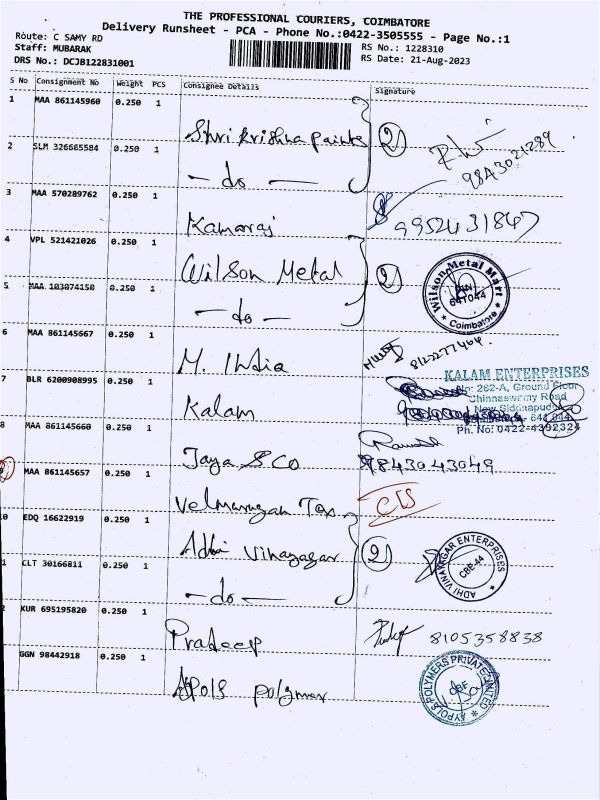 THE PROFESSIONAL COURIERS, COIMBATORE
Delivery Runsheet - PCA - Phone No.:0422-3505555 - Page No.:1
Route: C SAMY RD
Staff: MUBARAK
DRS No.: DCJB122831001
RS No.: 1228310
RS Date: 21-Aug-2023
S No Consignment No Weight PCS Consignee Details Signature
1 MAA 861145960 0.250 1
Shri krishna paints (2)
9843021289
2 SLM 326665584 0.250 1
— do —
3 MAA 570289762 0.250 1
Kamaraj 9952431847
4 VPL 521421026 0.250 1
Wilson Metal (2)
Wilson Metal Mart
PIN 641044
* Coimbatore *
5 MAA 103074150 0.250 1
— do —
6 MAA 861145667 0.250 1
M. India
7 BLR 6200908995 0.250 1
Kalam
KALAM ENTERPRISES
No: 262-A, Ground Floor
Chinnaswamy Road
New Siddhapudur
Ph. No: 0422-4392324
8 MAA 861145660 0.250 1
Jaya & CO 9843043049
9 MAA 861145657 0.250 1
Velmurugan Tex
0 EDQ 16622919 0.250 1
Adhi Vinayagar (2)
ADHI VINAYAGAR ENTERPRISES
CBE-44
1 CLT 30166811 0.250 1
— do —
2 KUR 695195820 0.250 1
Pradeep 8105358838
GGN 98442918 0.250 1
APOLS polymer
AYPOLS POLYMERS PRIVATE LIMITED
CBE